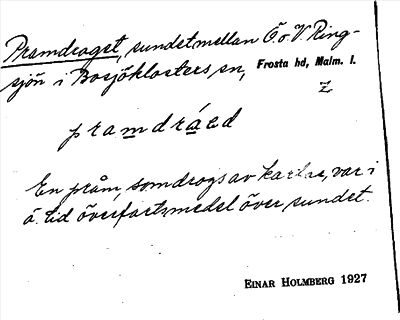 Pramdraget, sundet mellan Ö. o V. Ring-
sjön i Bosjöklosters sn, Frosta hd, Malm. l.
Z
pramdráed
En pråm, som drogs av karlar, var i
ä. tid överfartsmedel över sundet.
EINAR HOLMBERG 1927